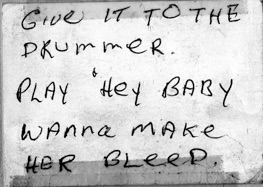 GIVE IT TO THE
DRUMMER.
PLAY 'HEY BABY
WANNA MAKE
HER BLEED.